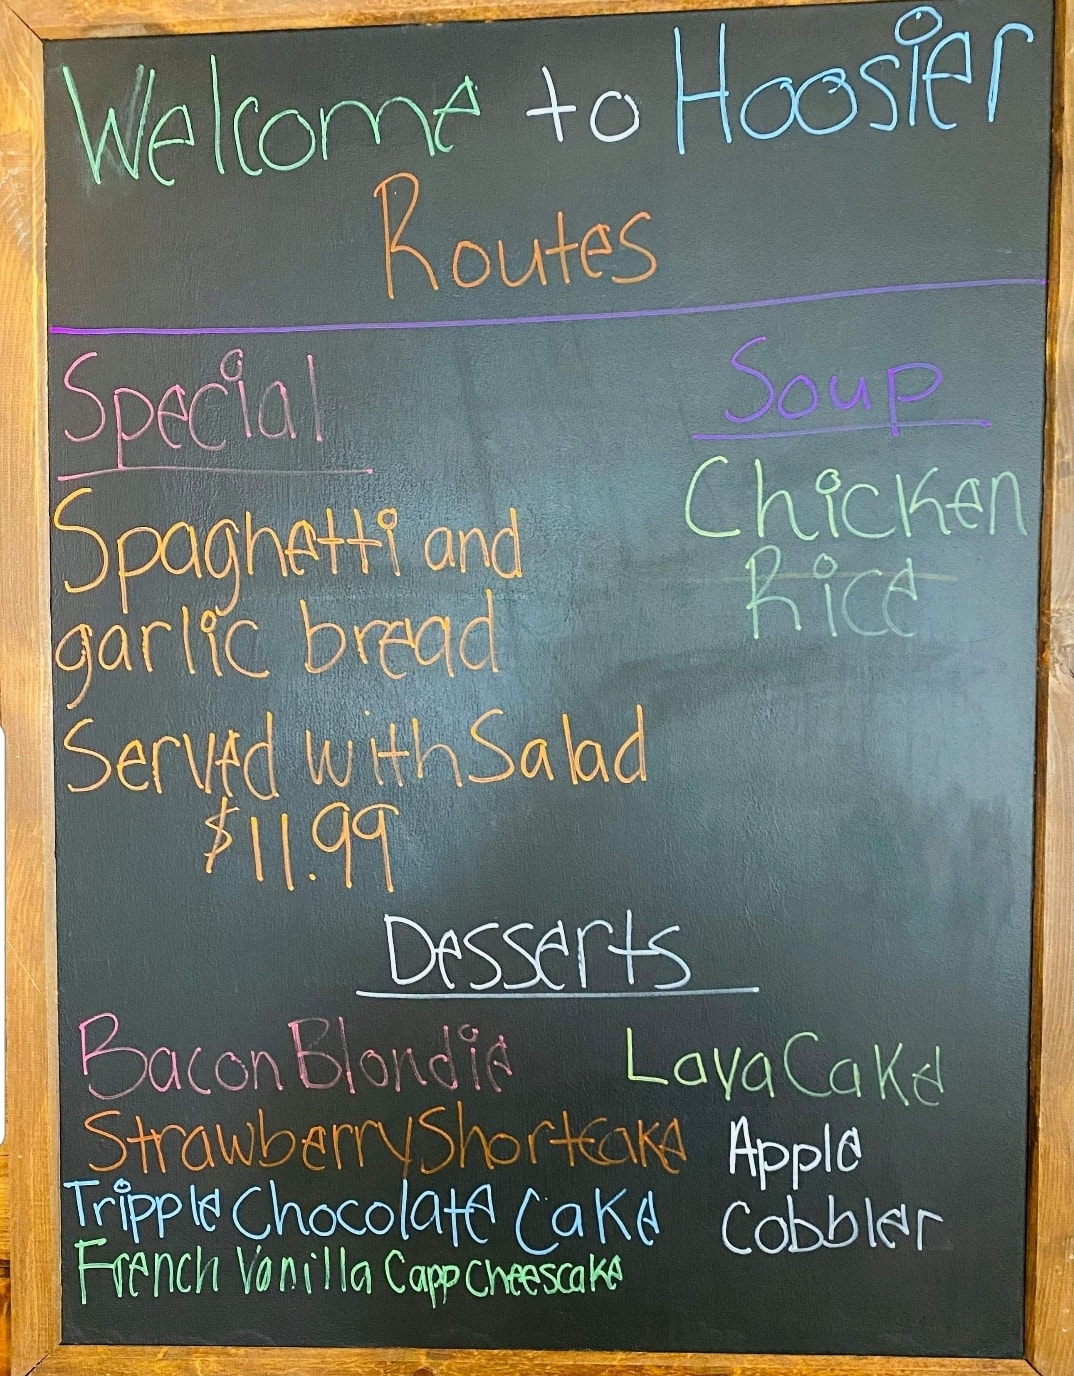 Welcome to Hoosier
Routes
Special
Spaghetti and
garlic bread
Served with Salad
$11.99
Soup
Chicken
Rice
Desserts
Bacon Blondie
Strawberry Shortcake
Tripple Chocolate Cake
French Vanilla Capp Cheescake
Lava Cake
Apple
Cobbler